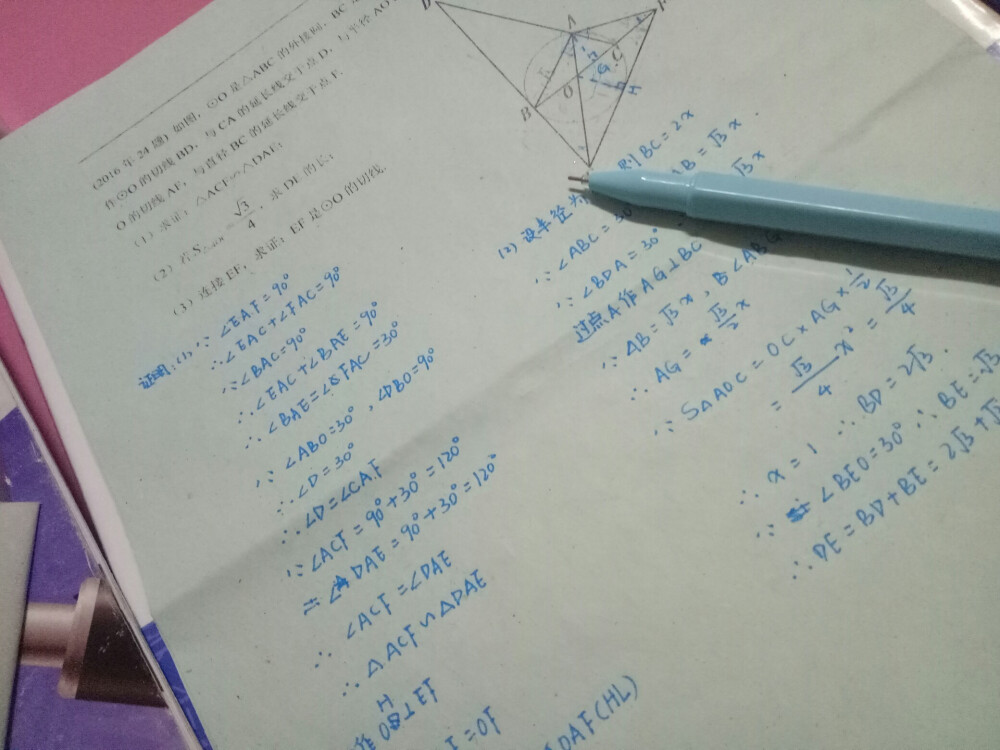 (2016年24题) 如图，⊙O是△ABC的外接圆，BC
作⊙O的切线BD，与CA的延长线交于点D，与半径AO
O的切线AF，与直径BC的延长线交于点F.
(1) 求证：△ACF∽△DAE；
(2) 若S = √3/4，求DE的长；
(3) 连接EF，求证：EF是⊙O的切线.
D
A
F
B
O
C
G
H
证明：(1) ∵∠EAF=90°
∴∠EAC+∠FAC=90°
∵∠BAC=90°
∴∠EAC+∠BAE=90°
∴∠BAE=∠FAC=30°
∵∠ABO=30°，∠DBO=90°
∴∠D=30°
∴∠D=∠CAF
∵∠ACF=90°+30°=120°
∠DAE=90°+30°=120°
∴∠ACF=∠DAE
∴△ACF∽△DAE
(2) 设半径为 则BC=2x
∵∠ABC=30° AB=√3x
∵∠BDA=30° √3x
过点A作AG⊥BC
∵AB=√3x，B∠ABG
∴AG=√3/2x
∵S△AOC=OC×AG×1/2
=√3/4x²=√3/4
∴x=1 ∴BD=2√3.
∵∠BEO=30° ∴BE=√3
∴DE=BD+BE=2√3+√3
H
=OF
DAF(HL)